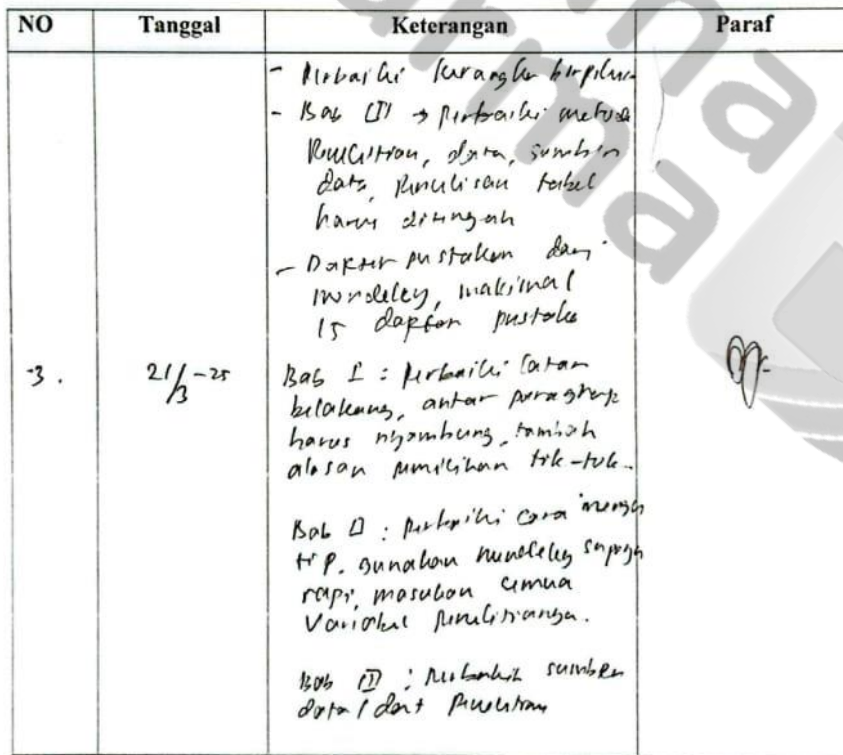 NO Tanggal Keterangan Paraf
- Perbaiki kerangka berpikir
- Bab III → perbaiki metode
Penelitian, data, sumber
data, penulisan tabel
harus ditengah
- Daftar pustaka dari
mendeley, maksimal
15 daftar pustaka
3. 21/3-25
Bab I : perbaiki latar
belakang, antar paragrap
harus nyambung, tambah
alasan pemilihan tik-tok.
Bab II : perbaiki cara mengu
tip, gunakan mendeley supaya
rapi, masukan semua
Variabel penelitiannya.
Bab III : perbaiki sumber
data / dari penelitian